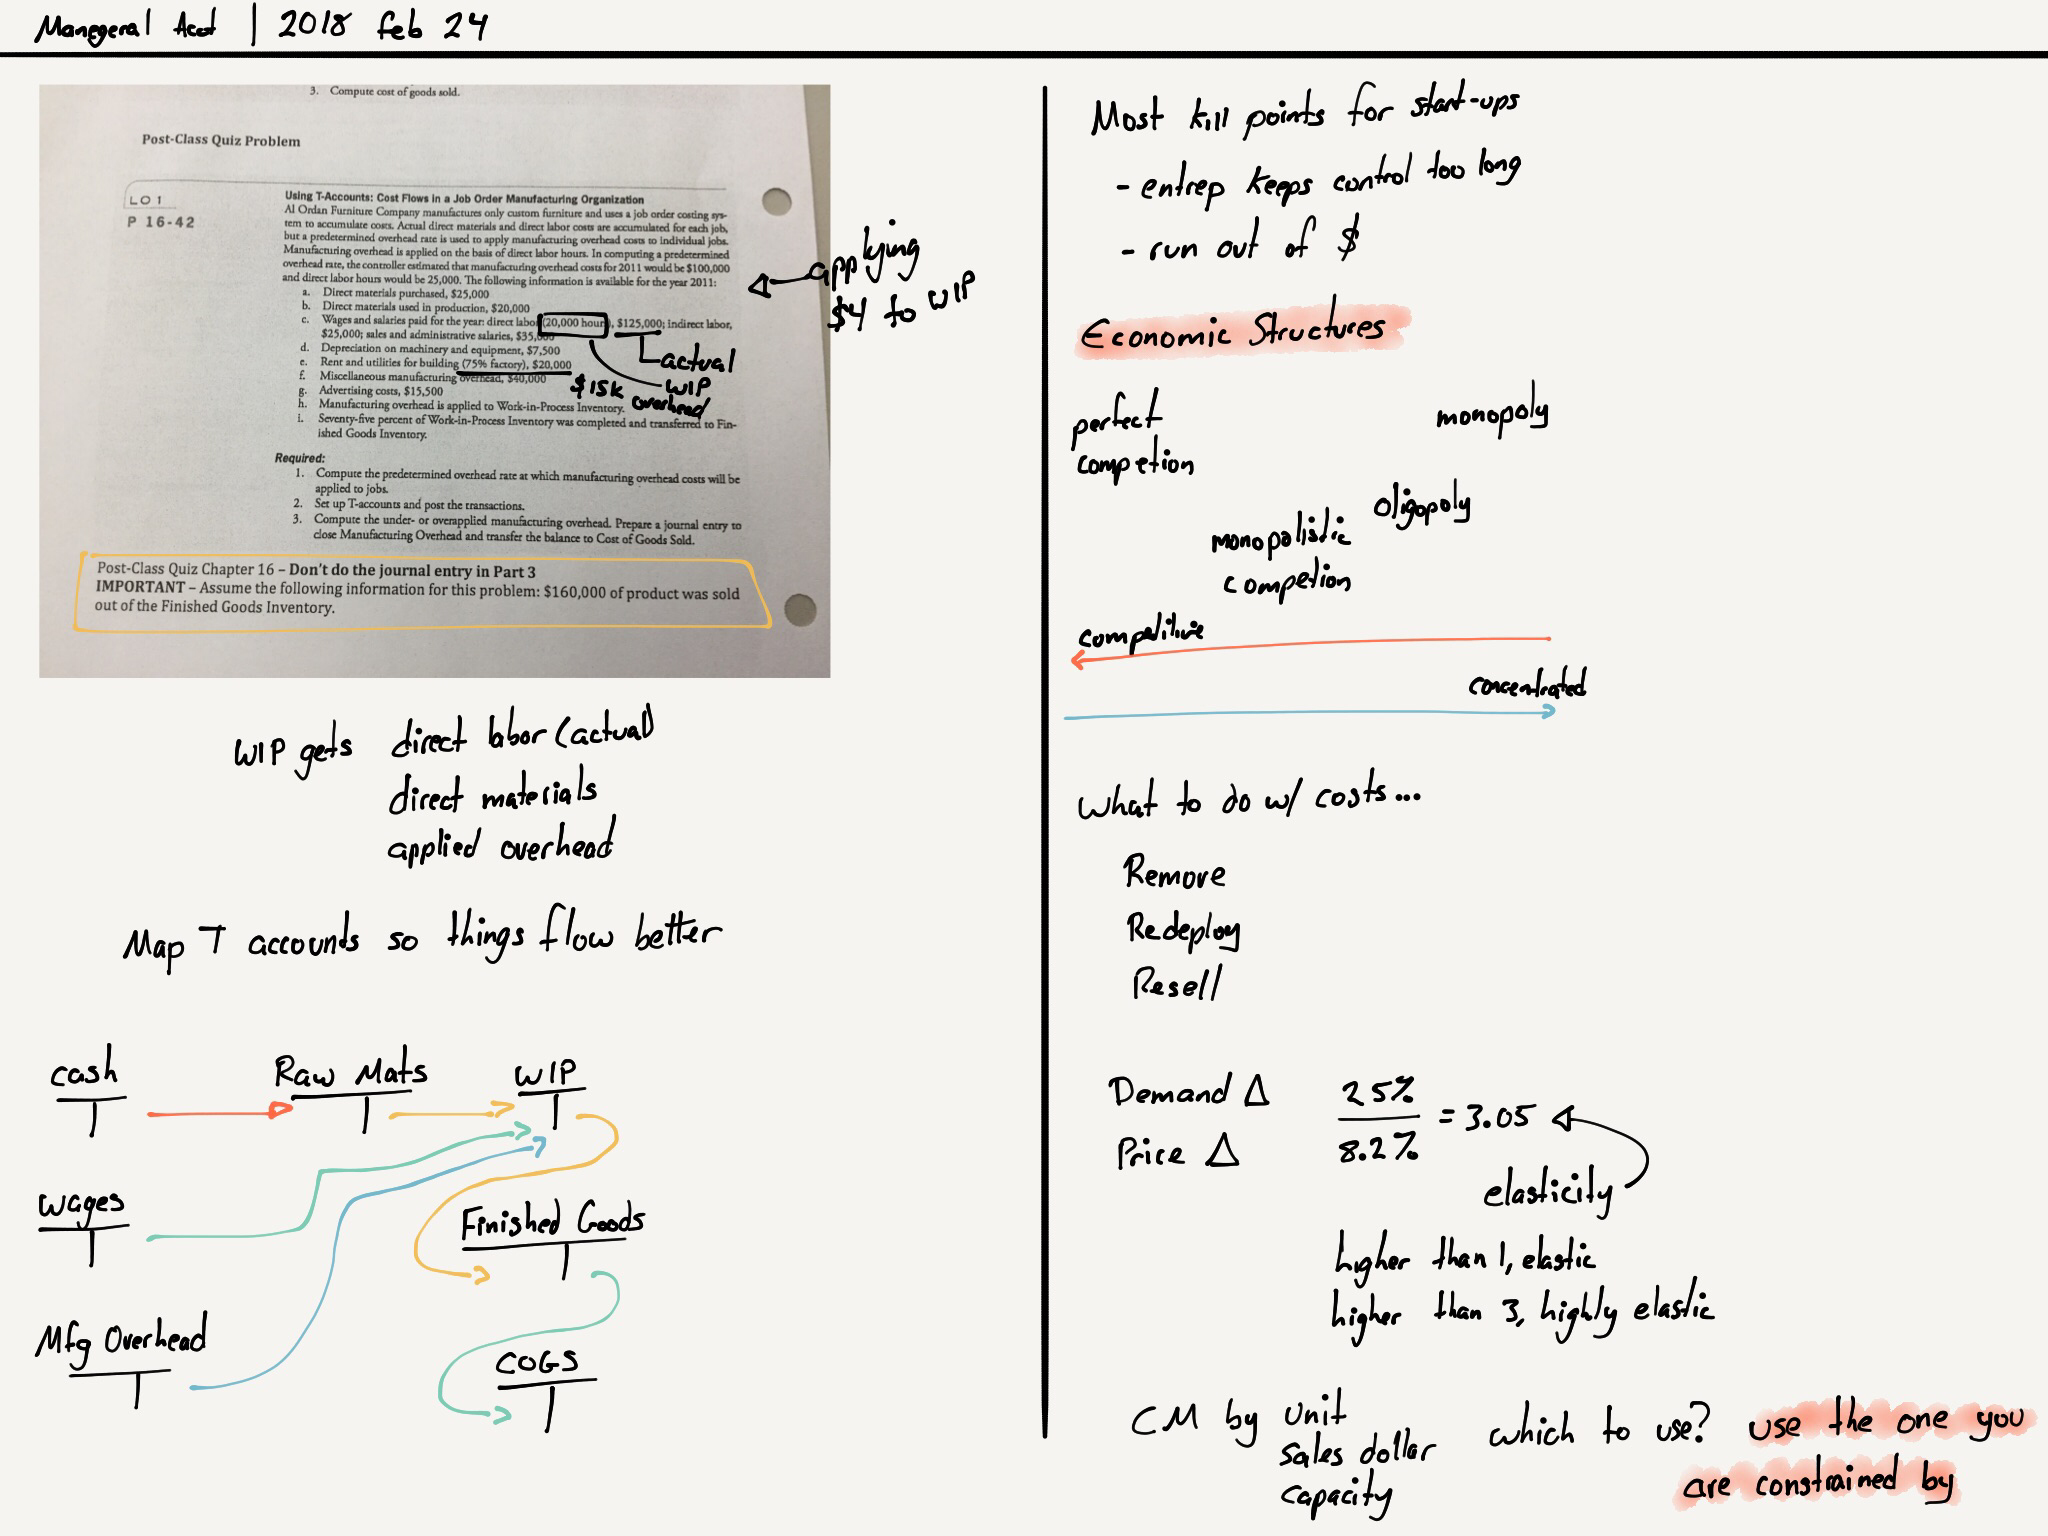 Manegeral Acct | 2018 Feb 24
3. Compute cost of goods sold.
Post-Class Quiz Problem
LO 1
P 16-42
Using T-Accounts: Cost Flows in a Job Order Manufacturing Organization
Al Ordan Furniture Company manufactures only custom furniture and uses a job order costing sys-
tem to accumulate costs. Actual direct materials and direct labor costs are accumulated for each job,
but a predetermined overhead rate is used to apply manufacturing overhead costs to individual jobs.
Manufacturing overhead is applied on the basis of direct labor hours. In computing a predetermined
overhead rate, the controller estimated that manufacturing overhead costs for 2011 would be $100,000
and direct labor hours would be 25,000. The following information is available for the year 2011:
a. Direct materials purchased, $25,000
b. Direct materials used in production, $20,000
c. Wages and salaries paid for the year: direct labor (20,000 hours), $125,000; indirect labor,
$25,000; sales and administrative salaries, $35,000
d. Depreciation on machinery and equipment, $7,500
e. Rent and utilities for building (75% factory), $20,000
f. Miscellaneous manufacturing overhead, $40,000
g. Advertising costs, $15,500
h. Manufacturing overhead is applied to Work-in-Process Inventory.
i. Seventy-five percent of Work-in-Process Inventory was completed and transferred to Fin-
ished Goods Inventory.
applying
$4 to WIP
actual
WIP
overhead
$15k
Required:
1. Compute the predetermined overhead rate at which manufacturing overhead costs will be
applied to jobs.
2. Set up T-accounts and post the transactions.
3. Compute the under- or overapplied manufacturing overhead. Prepare a journal entry to
close Manufacturing Overhead and transfer the balance to Cost of Goods Sold.
Post-Class Quiz Chapter 16 – Don't do the journal entry in Part 3
IMPORTANT – Assume the following information for this problem: $160,000 of product was sold
out of the Finished Goods Inventory.
WIP gets direct labor (actual)
direct materials
applied overhead
Map T accounts so things flow better
cash
Raw Mats
WIP
wages
Finished Goods
Mfg Overhead
COGS
Most kill points for start-ups
- entrep keeps control too long
- run out of $
Economic Structures
perfect
competion
monopoly
oligopoly
monopolistic
competion
competitive
concentrated
What to do w/ costs...
Remove
Redeploy
Resell
Demand Δ 25%
= 3.05
Price Δ 8.2%
elasticity
higher than 1, elastic
higher than 3, highly elastic
CM by unit which to use? use the one you
sales dollar
capacity
are constrained by